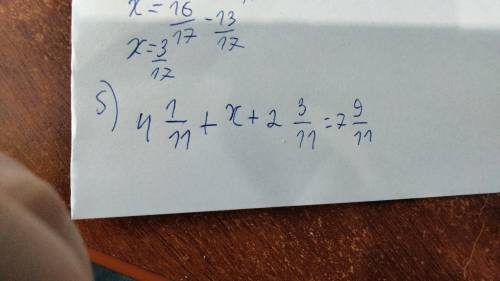 x = 16/17 - 13/17
x = 3/17
5) 4 1/11 + x + 2 3/11 = 7 9/11